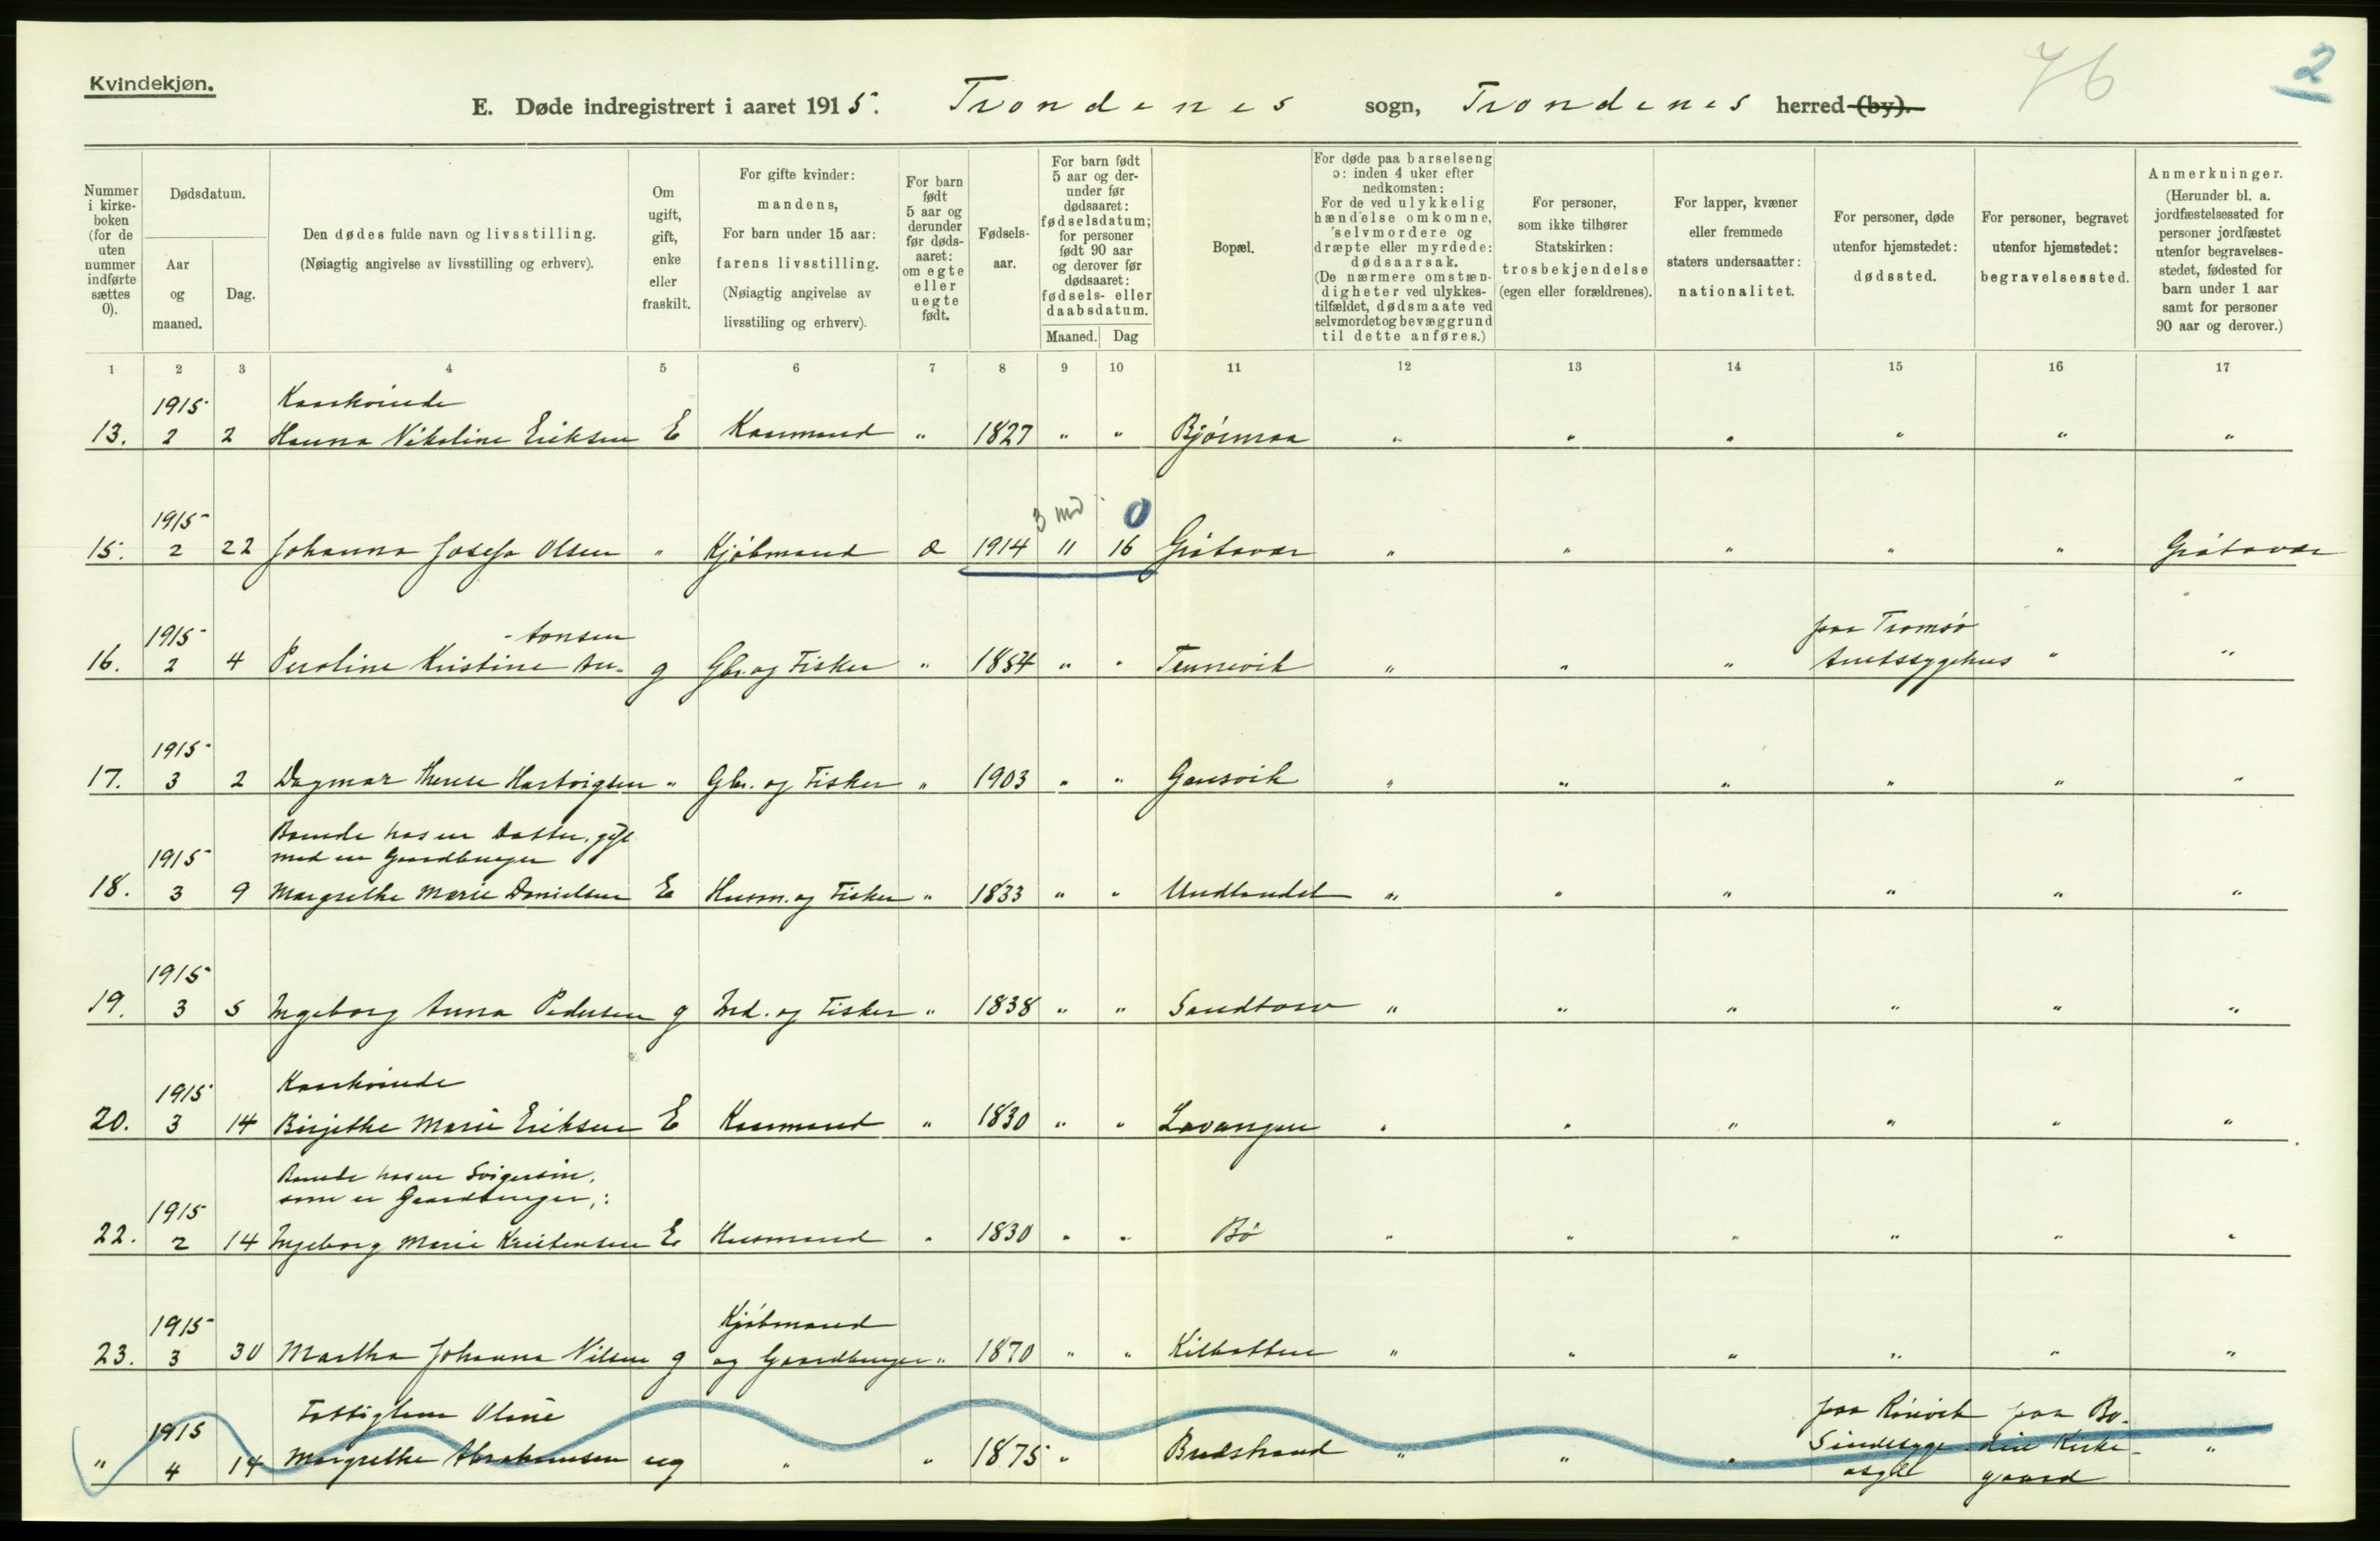 Kvindekjøn.
76
2
E. Døde indregistrert i aaret 1915. Trondenes sogn, Trondenes herred (by).
Nummer i kirkeboken (for de uten nummer indførte sættes 0).
Dødsdatum.
Aar og maaned.
Dag.
Den dødes fulde navn og livsstilling.
(Nøiagtig angivelse av livsstilling og erhverv).
Om ugift, gift, enke eller fraskilt.
For gifte kvinder: mandens,
For barn under 15 aar: farens livsstilling.
(Nøiagtig angivelse av livsstiling og erhverv).
For barn født 5 aar og derunder før dødsaaret: om egte eller uegte født.
Fødselsaar.
For barn født 5 aar og derunder før dødsaaret: fødselsdatum; for personer født 90 aar og derover før dødsaaret: fødsels- eller daabsdatum.
Maaned. Dag
Bopæl.
For døde paa barselseng ɔ: inden 4 uker efter nedkomsten:
For de ved ulykkelig hændelse omkomne, selvmordere og dræpte eller myrdede: dødsaarsak.
(De nærmere omstændigheter ved ulykkestilfældet, dødsmaate ved selvmordet og bevæggrund til dette anføres.)
For personer, som ikke tilhører Statskirken: trosbekjendelse (egen eller forældrenes).
For lapper, kvæner eller fremmede staters undersaatter: nationalitet.
For personer, døde utenfor hjemstedet: dødssted.
For personer, begravet utenfor hjemstedet: begravelsessted.
Anmerkninger.
(Herunder bl. a. jordfæstelsessted for personer jordfæstet utenfor begravelsesstedet, fødested for barn under 1 aar samt for personer 90 aar og derover.)
1 2 3 4 5 6 7 8 9 10 11 12 13 14 15 16 17
1915 Kaarkvinde
13. 2 2 Hanna Nikoline Eriksen E Kaarmand " 1827 " " Bjørnraa " " " " " "
1915 3 md 0
15. 2 22 Johanna Josefa Olsen " Kjøbmand e 1914 11 16 Grøtavær " " " " " Grøtavær
1915 -tonsen paa Tromsø
16. 2 4 Peroline Kristine An- g Gbr. og Fisker " 1854 " " Tennevik " " " Amtssygehus " "
1915
17. 3 2 Dagmar Therese Hartvigsen " Gbr. og Fisker " 1903 " " Gausvik " " " " " "
Boende hos en Datter, gift
1915 med en Gaardbruger
18. 3 9 Margrethe Marie Danielsen E Husm. og Fisker " 1833 " " Undlandet " " " " " "
1915
19. 3 5 Ingeborg Anna Pedersen g Ind. og Fisker " 1838 " " Sandtorv " " " " " "
1915 Kaarkvinde
20. 3 14 Birjethe Marie Eriksen E Kaarmand " 1830 " " Lavangen " " " " " "
Boende hos en Svigersøn,
1915 som er Gaardbruger,:
22. 2 14 Ingeborg Marie Kristensen E Husmand " 1830 " " Bø " " " " " "
1915 Kjøbmand
23. 3 30 Martha Johanna Nilsen g og Gaardbruger " 1870 " " Kilbotten " " " " " "
1915 Fattiglem Oline paa Rønvik paa Bo-
" 4 14 Margrethe Abrahamsen ug " " 1875 " Bredstrand " " " Sindssyge- din Kirke- "
asyl gaard